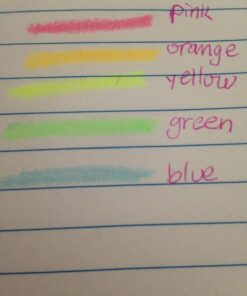 pink
orange
yellow
green
blue